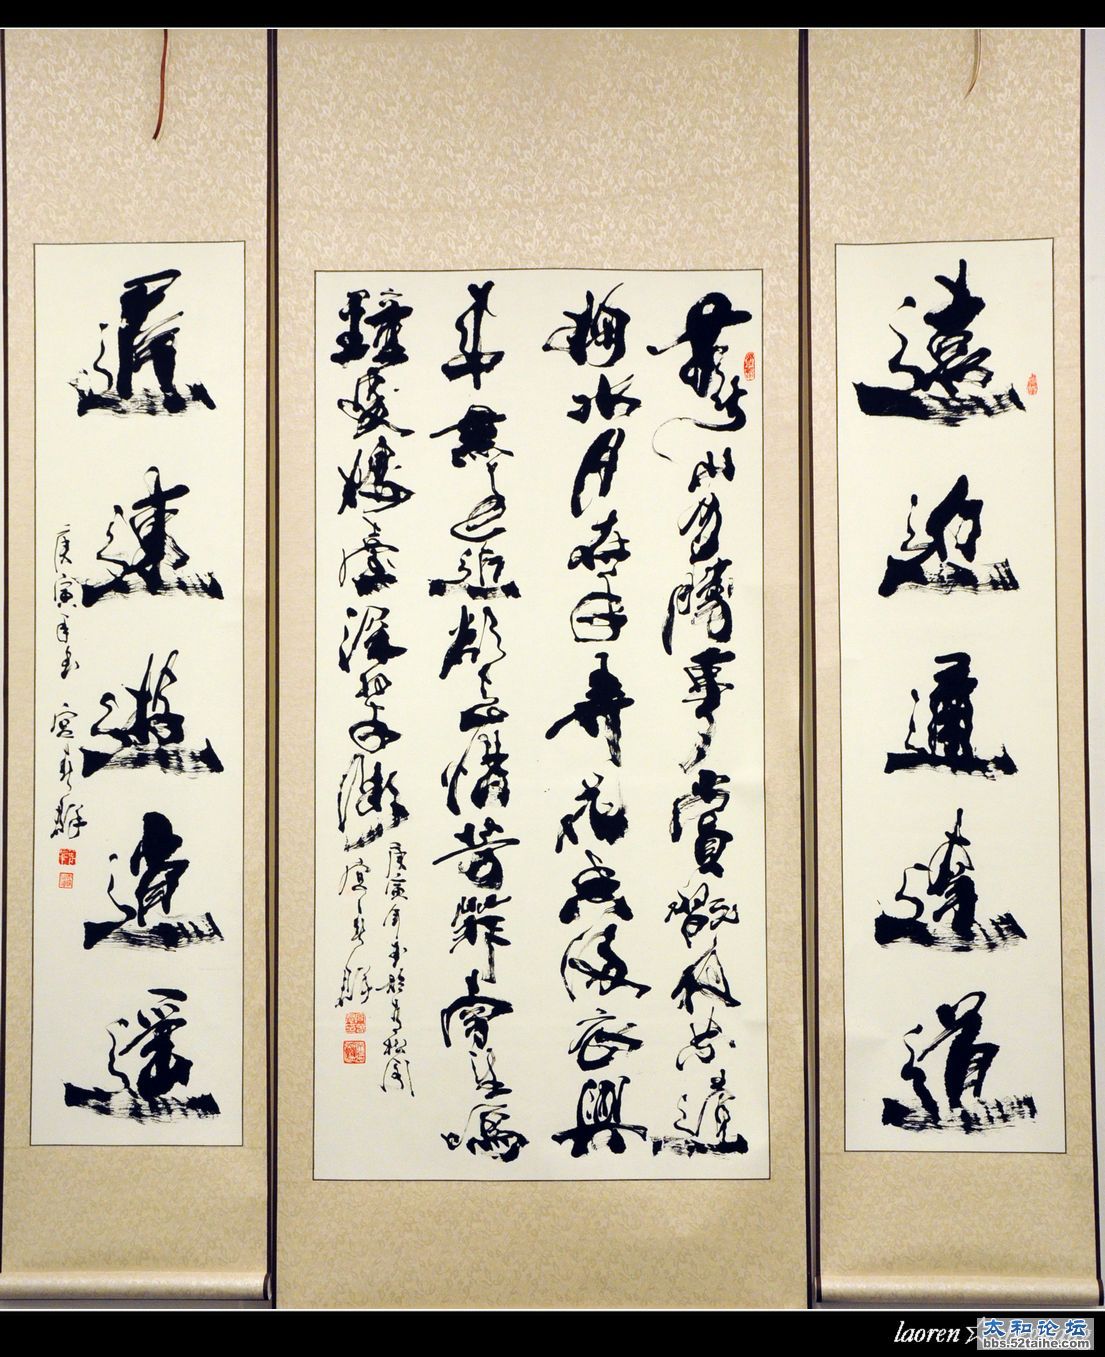 遠近通達道
春山多勝事賞翫夜忘歸
掬水月在手弄花香滿衣興
來無遠近欲去惜芳菲南望鳴
鐘處樓臺深翠微
庚寅年書於
遲速遊逍遥
庚寅年書
laoren
太和论坛
bbs.52taihe.com